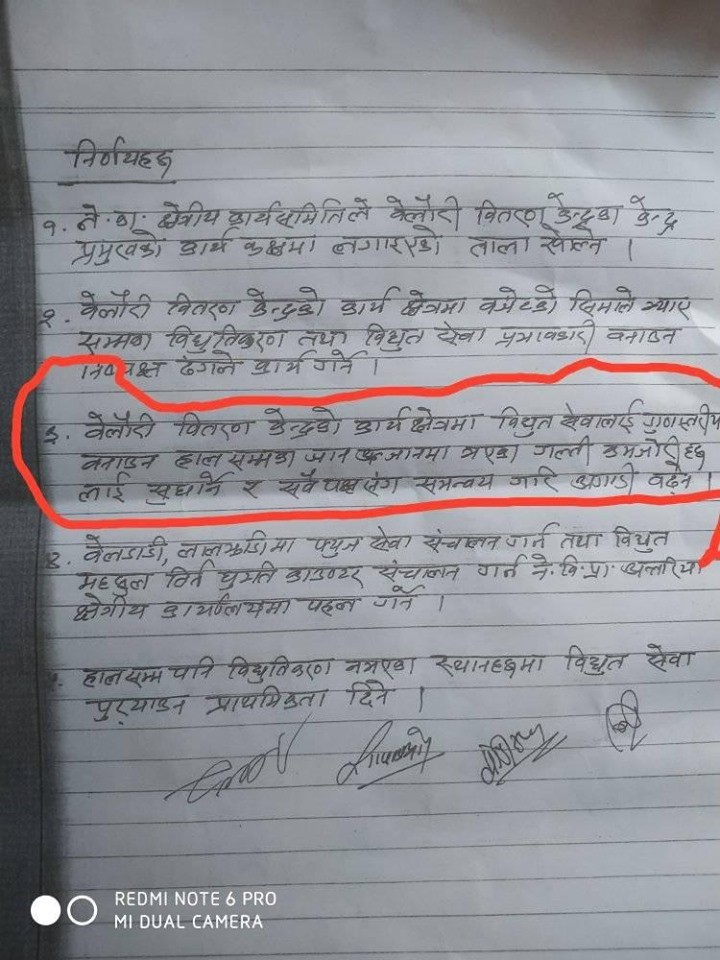 निर्णयहरू
१. ने. का. क्षेत्रीय कार्यसमितिले वेलौरी वितरण केन्द्रका केन्द्र
प्रमुखको कार्य कक्षमा लगाइएको ताला खोल्ने ।
२. वेलौरी वितरण केन्द्रको कार्य क्षेत्रमा वजेटको सिमाले भ्याए
सम्मका विधुतिकरण तथा विधुत सेवा प्रभावकारी वनाउन
निष्पक्ष ढंगले कार्य गर्ने ।
३. वेलौरी वितरण केन्द्रको कार्य क्षेत्रमा विधुत सेवालाई गुणस्तरीय
वनाउन हाल सम्मका जान अन्जानमा भएका गल्ती कमजोरीहरू
लाई सुधार्ने र सवै पक्षसंग समन्वय गरि अगाडी वढ्ने ।
४. वेलडाडी, लालझाडीमा फ्युज सेवा संचालन गर्न तथा विधुत
महशुल विर्न घुम्ति काउण्टर संचालन गर्न ने. वि. प्रा. अत्तरिया
क्षेत्रीय कार्यालयमा पहल गर्ने ।
५. हालसम्म पनि विधुतिकरण नभएका स्थानहरूमा विधुत सेवा
पुर्‍याउन प्राथमिकता दिने ।
REDMI NOTE 6 PRO
MI DUAL CAMERA